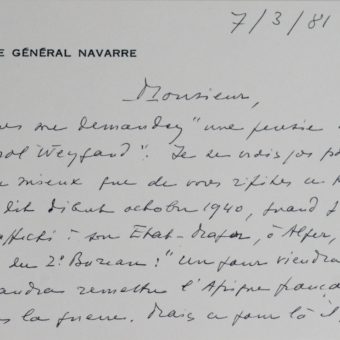 7/3/81
E GÉNÉRAL NAVARRE
Monsieur,
es me demandez "une pensée
ol Weygand". Je ne vois pas
mieux que de vous
dit début octobre 1940, quand j
son Etat-Major, à Alger,
du 2° Bureau : "Un jour viendra
remettre l'Afrique
s la guerre. Mais ce jour là il